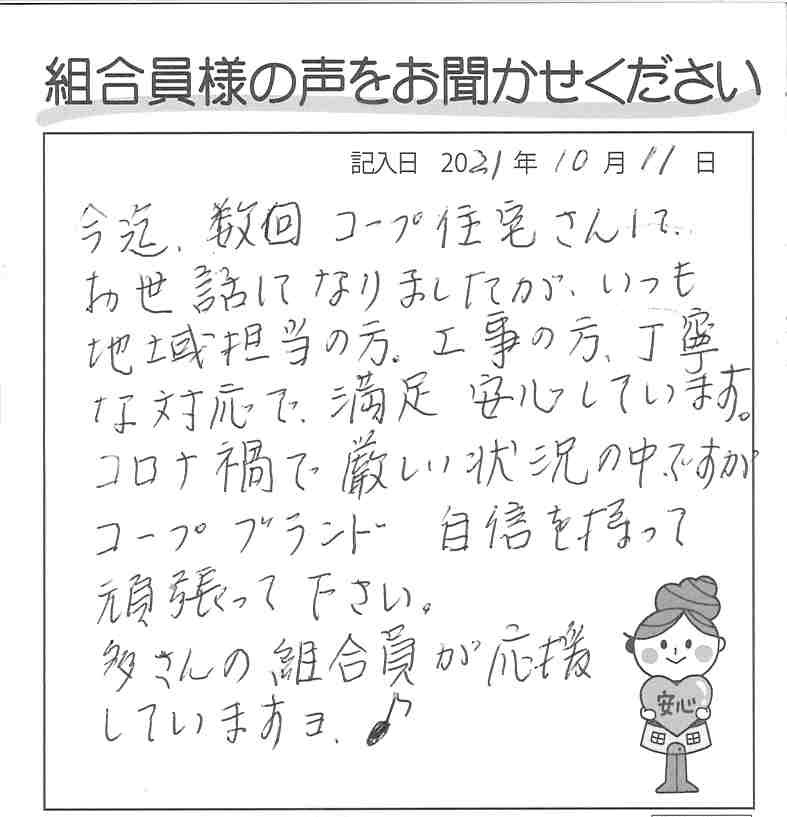 組合員様の声をお聞かせください
記入日 2021年10月11日
今迄、数回 コープ住宅さんにて、
お世話になりましたが、いつも
地域担当の方。工事の方、丁寧
な対応で、満足 安心しています。
コロナ禍で厳しい状況の中ですが
コープブランド 自信を持って
頑張って下さい。
多さんの組合員が応援
していますヨ、♪
安心